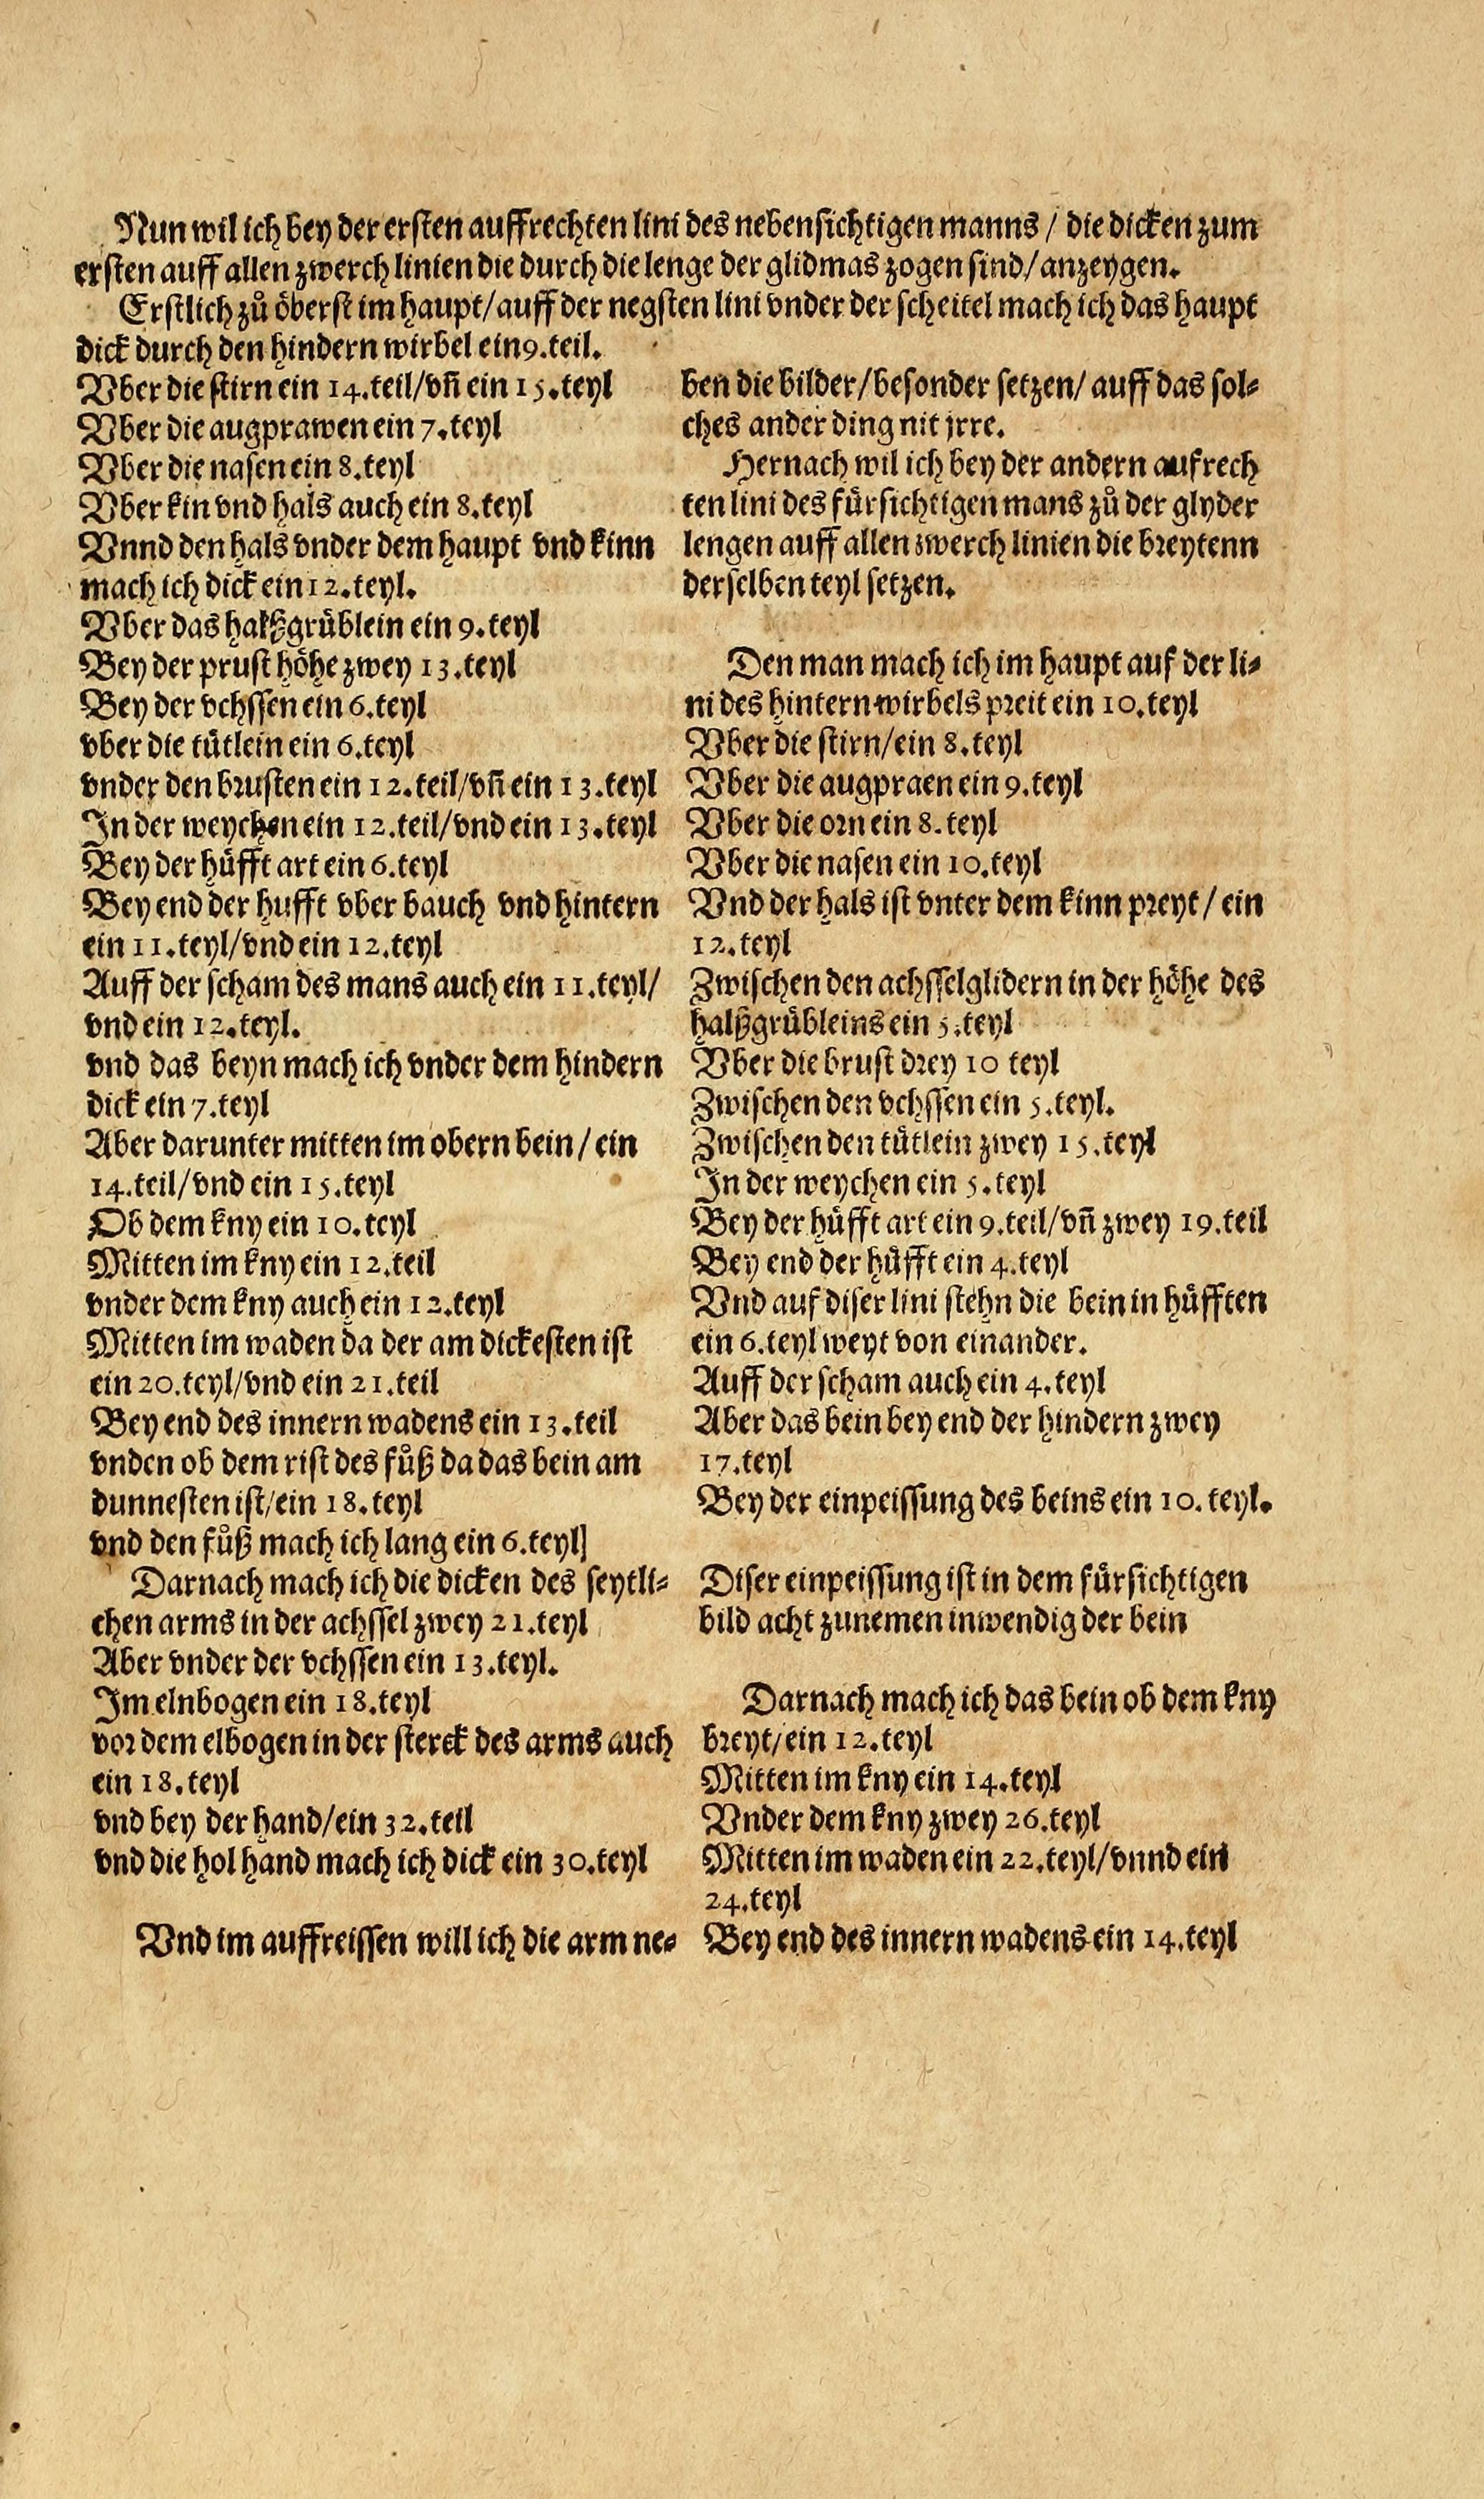 Nun wil ich bey der ersten auffrechten lini des nebensichtigen manns / die dicken zum
ersten auff allen zwerch linien die durch die lenge der glidmas zogen sind/anzeygen.
Erstlich zů öberst im haupt/auff der negsten lini vnder der scheitel mach ich das haupt
dick durch den hindern wirbel ein 9.teil.
Vber die stirn ein 14.teil/vñ ein 15.teyl
Vber die augprawen ein 7.teyl
Vber die nasen ein 8.teyl
Vber kin vnd hals auch ein 8.teyl
Vnnd den hals vnder dem haupt vnd kinn
mach ich dick ein 12.teyl.
Vber das halßgrüblein ein 9.teyl
Bey der prust höhe zwey 13.teyl
Bey der vchssen ein 6.teyl
vber die tütlein ein 6.teyl
vnder den brusten ein 12.teil/vñ ein 13.teyl
In der weychen ein 12.teil/vnd ein 13.teyl
Bey der hüfft art ein 6.teyl
Bey end der hufft vber bauch vnd hintern
ein 11.teyl/vnd ein 12.teyl
Auff der scham des mans auch ein 11.teyl/
vnd ein 12.teyl.
vnd das beyn mach ich vnder dem hindern
dick ein 7.teyl
Aber darunter mitten im obern bein/ein
14.teil/vnd ein 15.teyl
Ob dem kny ein 10.teyl
Mitten im kny ein 12.teil
vnder dem kny auch ein 12.teyl
Mitten im waden da der am dickesten ist
ein 20.teyl/vnd ein 21.teil
Bey end des innern wadens ein 13.teil
vnden ob dem rist des fůß da das bein am
dunnesten ist/ein 18.teyl
vnd den fůß mach ich lang ein 6.teyl]
Darnach mach ich die dicken des seytli⸗
chen arms in der achssel zwey 21.teyl
Aber vnder der vchssen ein 13.teyl.
Im elnbogen ein 18.teyl
vor dem elbogen in der sterck des arms auch
ein 18.teyl
vnd bey der hand/ein 32.teil
vnd die hol hand mach ich dick ein 30.teyl
Vnd im auffreissen will ich die arm ne⸗
ben die bilder/besonder setzen/auff das sol⸗
ches ander ding nit jrre.
Hernach wil ich bey der andern aufrech
ten lini des fürsichtigen mans zů der glyder
lengen auff allen zwerch linien die breytenn
derselben teyl setzen.
Den man mach ich im haupt auf der li⸗
ni des hintern wirbels preit ein 10.teyl
Vber die stirn/ein 8.teyl
Vber die augpraen ein 9.teyl
Vber die orn ein 8.teyl
Vber die nasen ein 10.teyl
Vnd der hals ist vnter dem kinn preyt/ein
12.teyl
Zwischen den achsselglidern in der höhe des
halßgrübleins ein 5.teyl
Vber die brust drey 10 teyl
Zwischen den vchssen ein 5.teyl.
Zwischen den tütlein zwey 15.teyl
In der weychen ein 5.teyl
Bey der hüfft art ein 9.teil/vñ zwey 19.teil
Bey end der hüfft ein 4.teyl
Vnd auf diser lini stehn die bein in hüfften
ein 6.teyl weyt von einander.
Auff der scham auch ein 4.teyl
Aber das bein bey end der hindern zwey
17.teyl
Bey der einpeissung des beins ein 10.teyl.
Diser einpeissung ist in dem fürsichtigen
bild acht zunemen inwendig der bein
Darnach mach ich das bein ob dem kny
breyt/ein 12.teyl
Mitten im kny ein 14.teyl
Vnder dem kny zwey 26.teyl
Mitten im waden ein 22.teyl/vnnd ein
24.teyl
Bey end des innern wadens ein 14.teyl